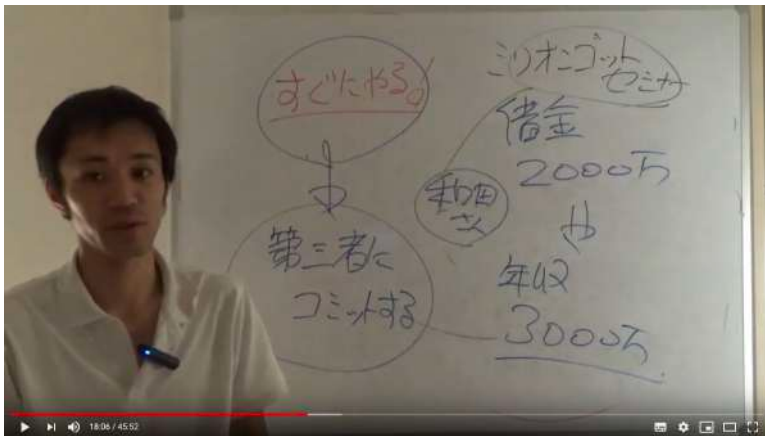 すぐにやる。
第三者に
コミットする
ミリオンゴット
セミナー
借金
2000万
和田
さん
年収
3000万
18:06 / 45:52